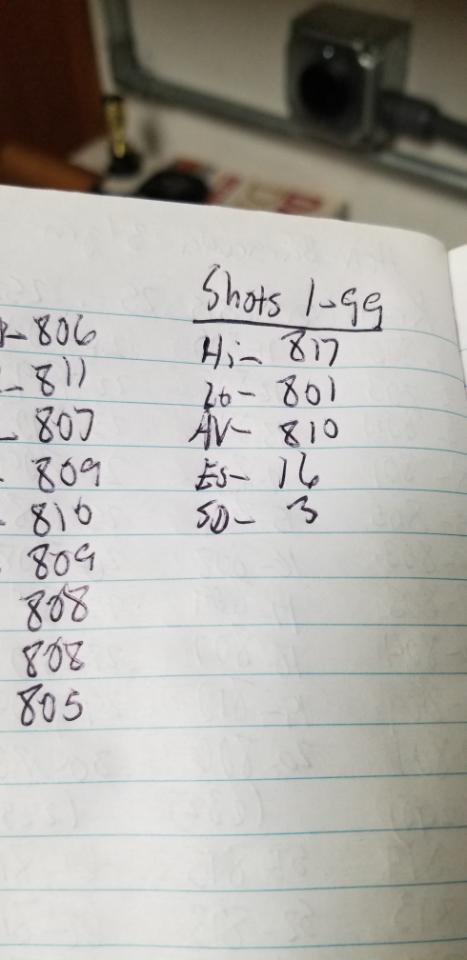 806
811
807
809
810
809
808
808
805
Shots 1-99
Hi- 817
Lo- 801
AV- 810
ES- 16
SD- 3